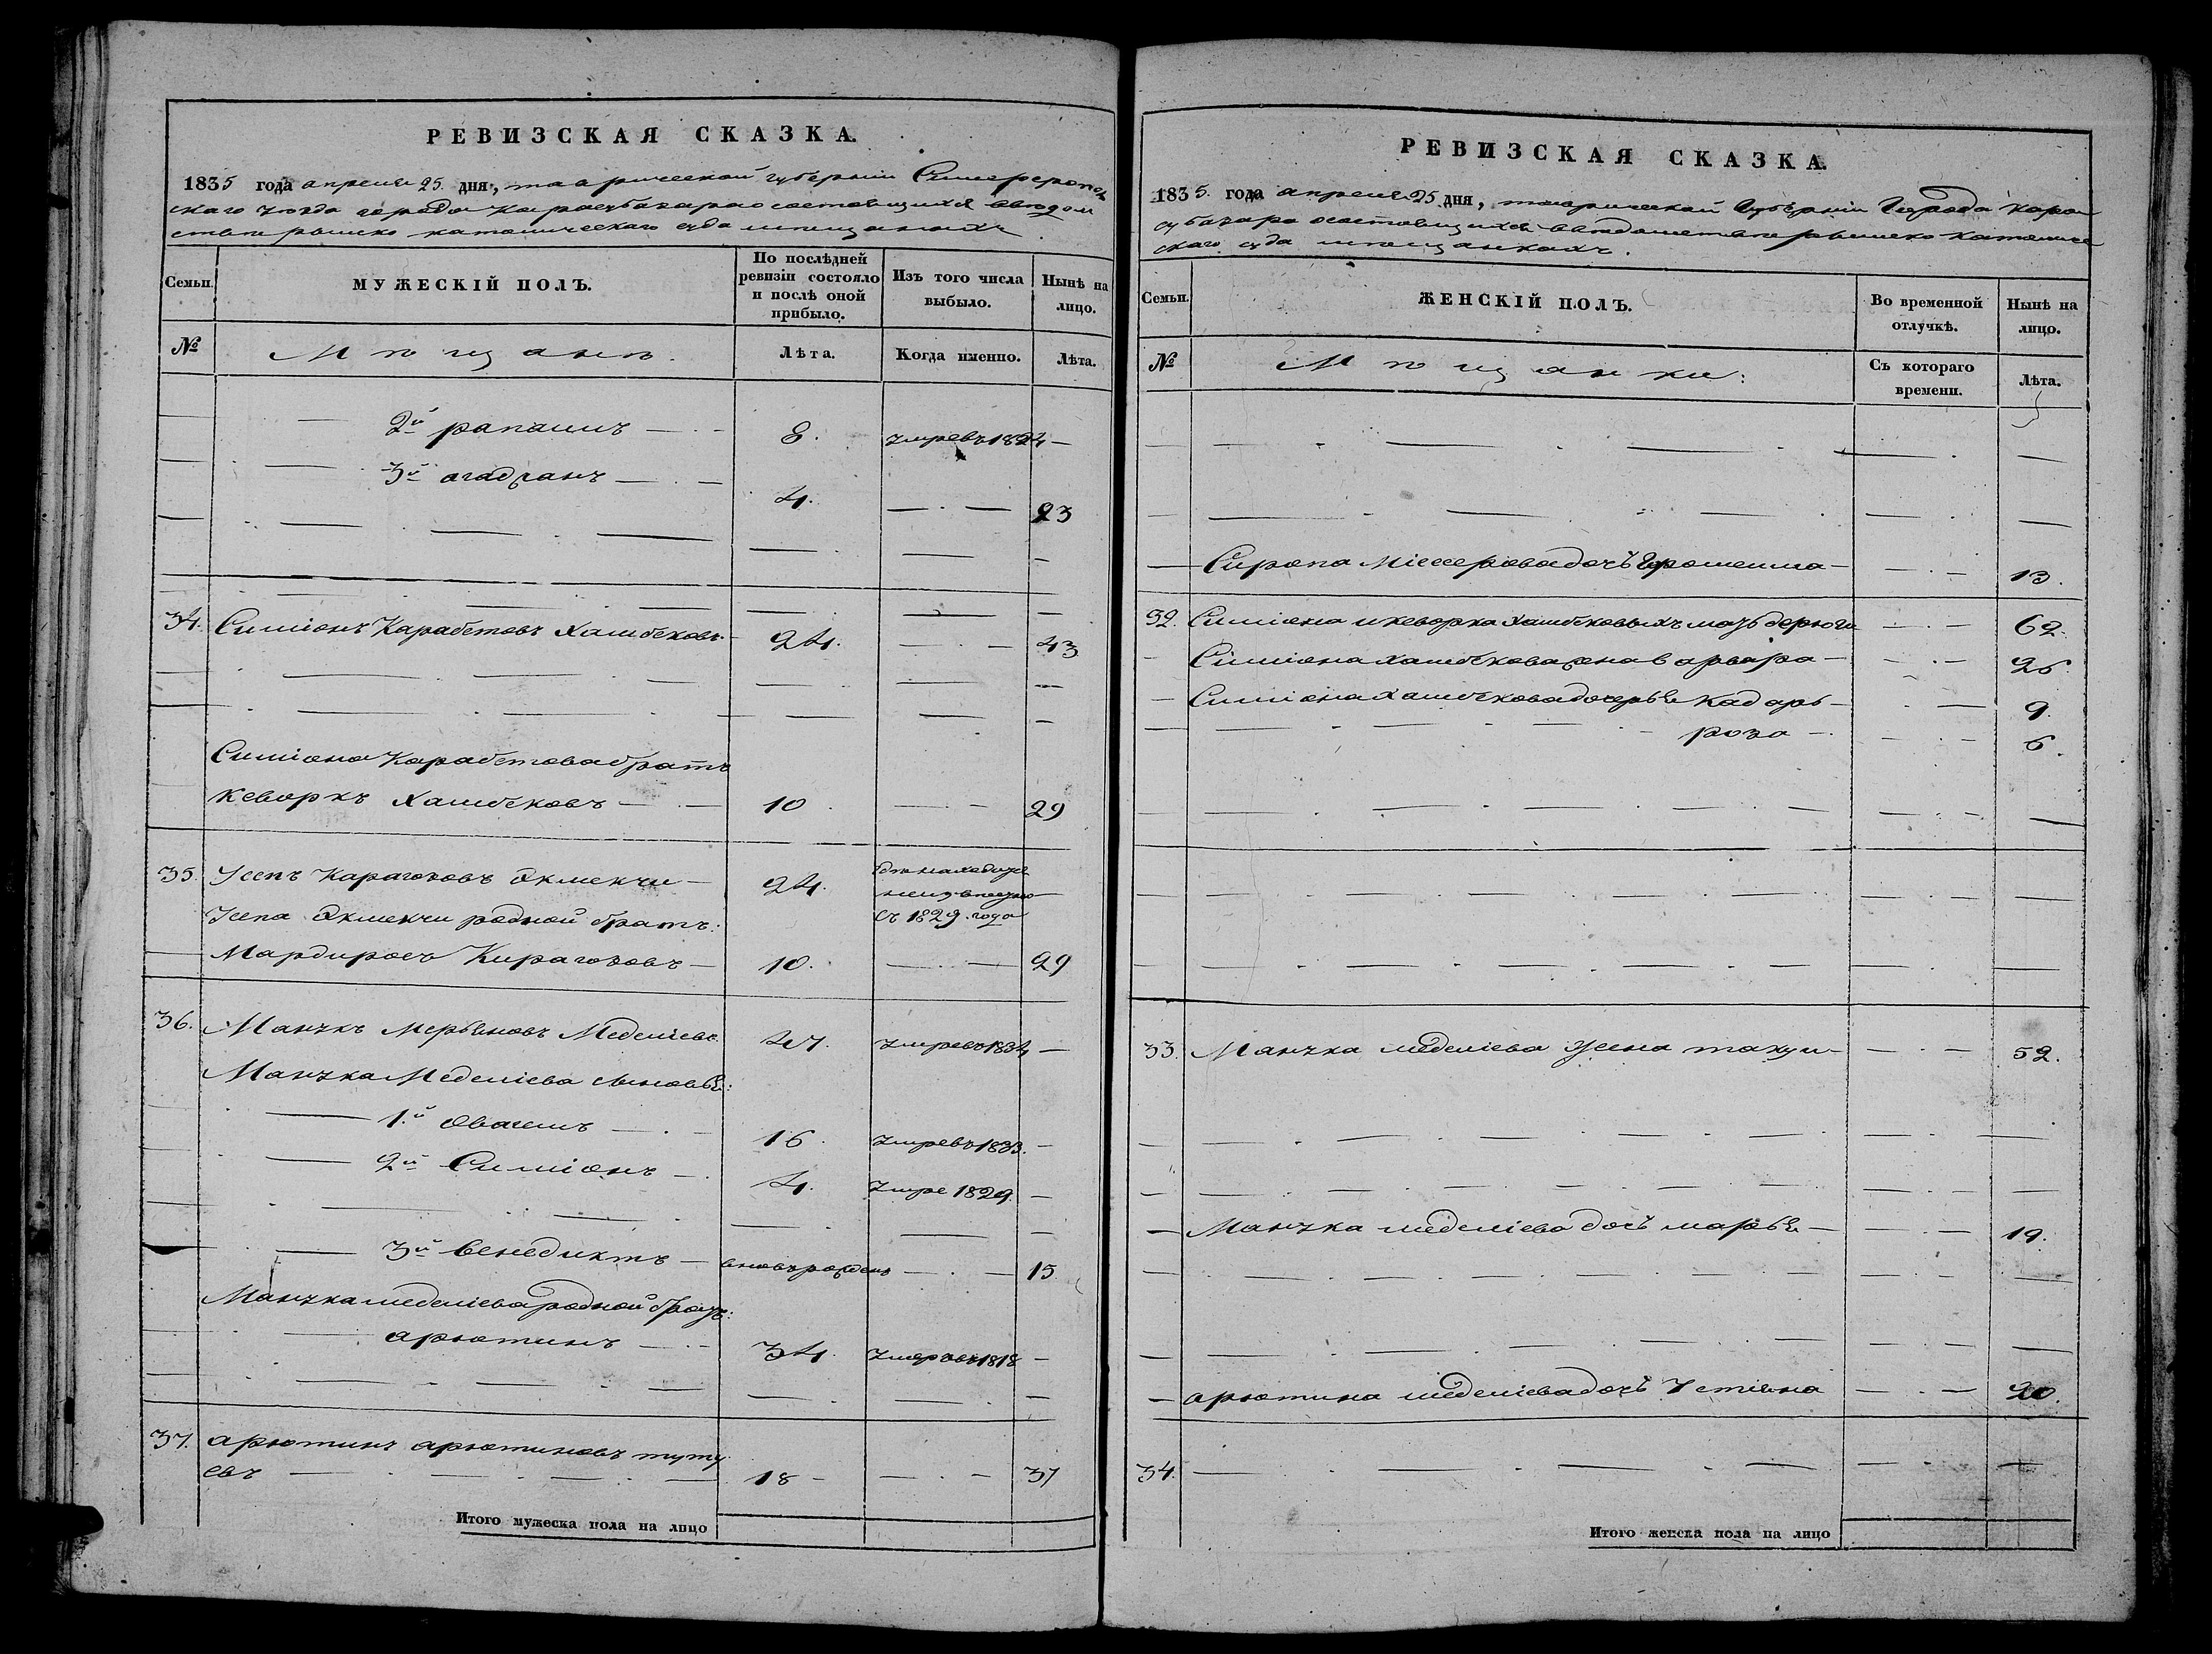 РЕВИЗСКАЯ СКАЗКА.
1835 года апреля 25 дня, таврической губернии Симферополь
скаго уезда города Карасубазара о состоящихся ведом
ства римско католическаго суда мещанахъ
Семьи.
МУЖЕСКІЙ ПОЛЪ.
По послѣдней ревизіи состояло и послѣ оной прибыло.
Изъ того числа выбыло.
Нынѣ на лицо.
№
Мѣщанѣ.
Лѣта.
Когда именно.
Лѣта.
2й — 8. умре въ 1824 —
3й — 4. — 23
34. Симіонъ Карабетовъ Хашбековъ 24. — 43
Симіона Карабетова братъ
Кеворкъ Хашбековъ — 10 — 29
35. Усепъ Карагозовъ Экмекчи — 24. 
съ 1829. года
Усепа Экмекчи родной братъ:
Мардиросъ Кирагозовъ — 10. — 29
36. Манукъ Мерьяновъ Меделіевъ 47. умре въ 1834 —
Манука Меделіева сыновья:
1.й Овагемъ — 16. умре въ 1833. —
2й Симіонъ — 4. умре 1829. —
3й Венедиктъ — вновь рожденъ — 15.
Манука меделіева родной братъ:
арютинъ — 34. умре въ 1818 —
37. арютинъ арютиновъ туту
евъ — 18 — 37
Итого мужеска пола на лицо
РЕВИЗСКАЯ СКАЗКА.
1835. года апреля 25 дня, таврической Губерніи Города Кара
субазара о состоящихся ведомства римско католиче
скаго суда мещанкахъ.
Семьи.
ЖЕНСКІЙ ПОЛЪ.
Во временной отлучкѣ.
Нынѣ на лицо.
№
Мѣщанки:
Съ котораго времени.
Лѣта.
дочь — 13.
32. Симіона и кеворка Хашбековыхъ мать — 62.
Симіона Хашбекова жена варвара — 26.
Симіона Хашбекова дочерья Кадарь — 9.
роза — 6.
33. Манука меделіева жена такуи — 52.
Манука меделіева дочь марья — 19.
арютина меделіева дочь — 20.
34. —
Итого женска пола на лицо